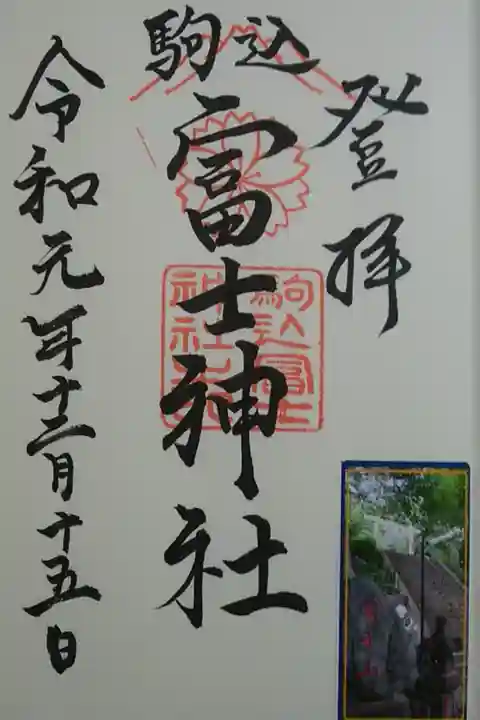 登拝
駒込
富士神社
令和元年十二月十五日
駒込富士
神社